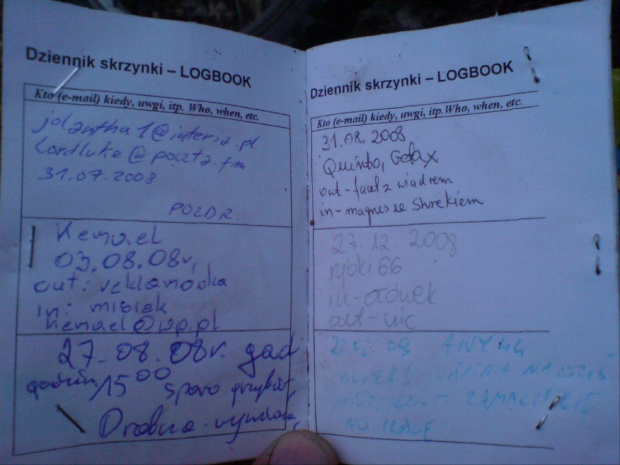 Dziennik skrzynki – LOGBOOK
Kto (e-mail) kiedy, uwgi, itp. Who, when, etc.
jolantha1@interia.pl
Lordluke@poczta.fm
31.07.2008
POZDR.
Kemael
03.08.08r,
out: reklamówka
in: misiek
kemael@wp.pl
27-08.08r. god
godzin 15 00 sporo grzybów
Drobna
Dziennik skrzynki – LOGBOOK
Kto (e-mail) kiedy, uwgi, itp. Who, when, etc.
31.08.2008
Quinto,
out - facet z wiadrem
in - magnes ze Shrekiem
27.12.2008
rybki66
in - ołówek
out - nic
NA